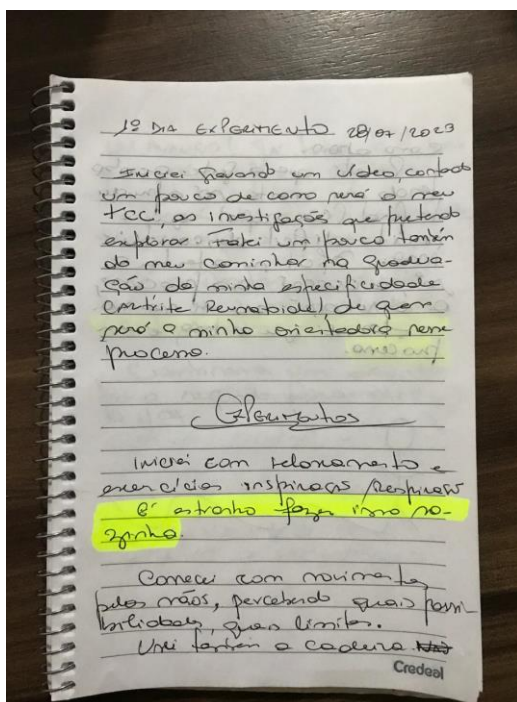 1º DIA EXPERIMENTO 28/07/2023
Iniciei gravando um vídeo, contado
um pouco de como será o meu
TCC, as investigações que pretendo
explorar. Falei um pouco também
do meu caminhar na gradua-
ção da minha especificidade
(Artrite Reumatoide) de quem
será a minha orientadora nesse
processo.
Experimentos
Iniciei com relaxamento e
exercícios inspiração/respiração
É estranho fazer isso so-
zinha.
Comecei com movimentos
pelas mãos, percebendo quais possi-
bilidades, quais limites.
Usei também a cadeira
Credeal